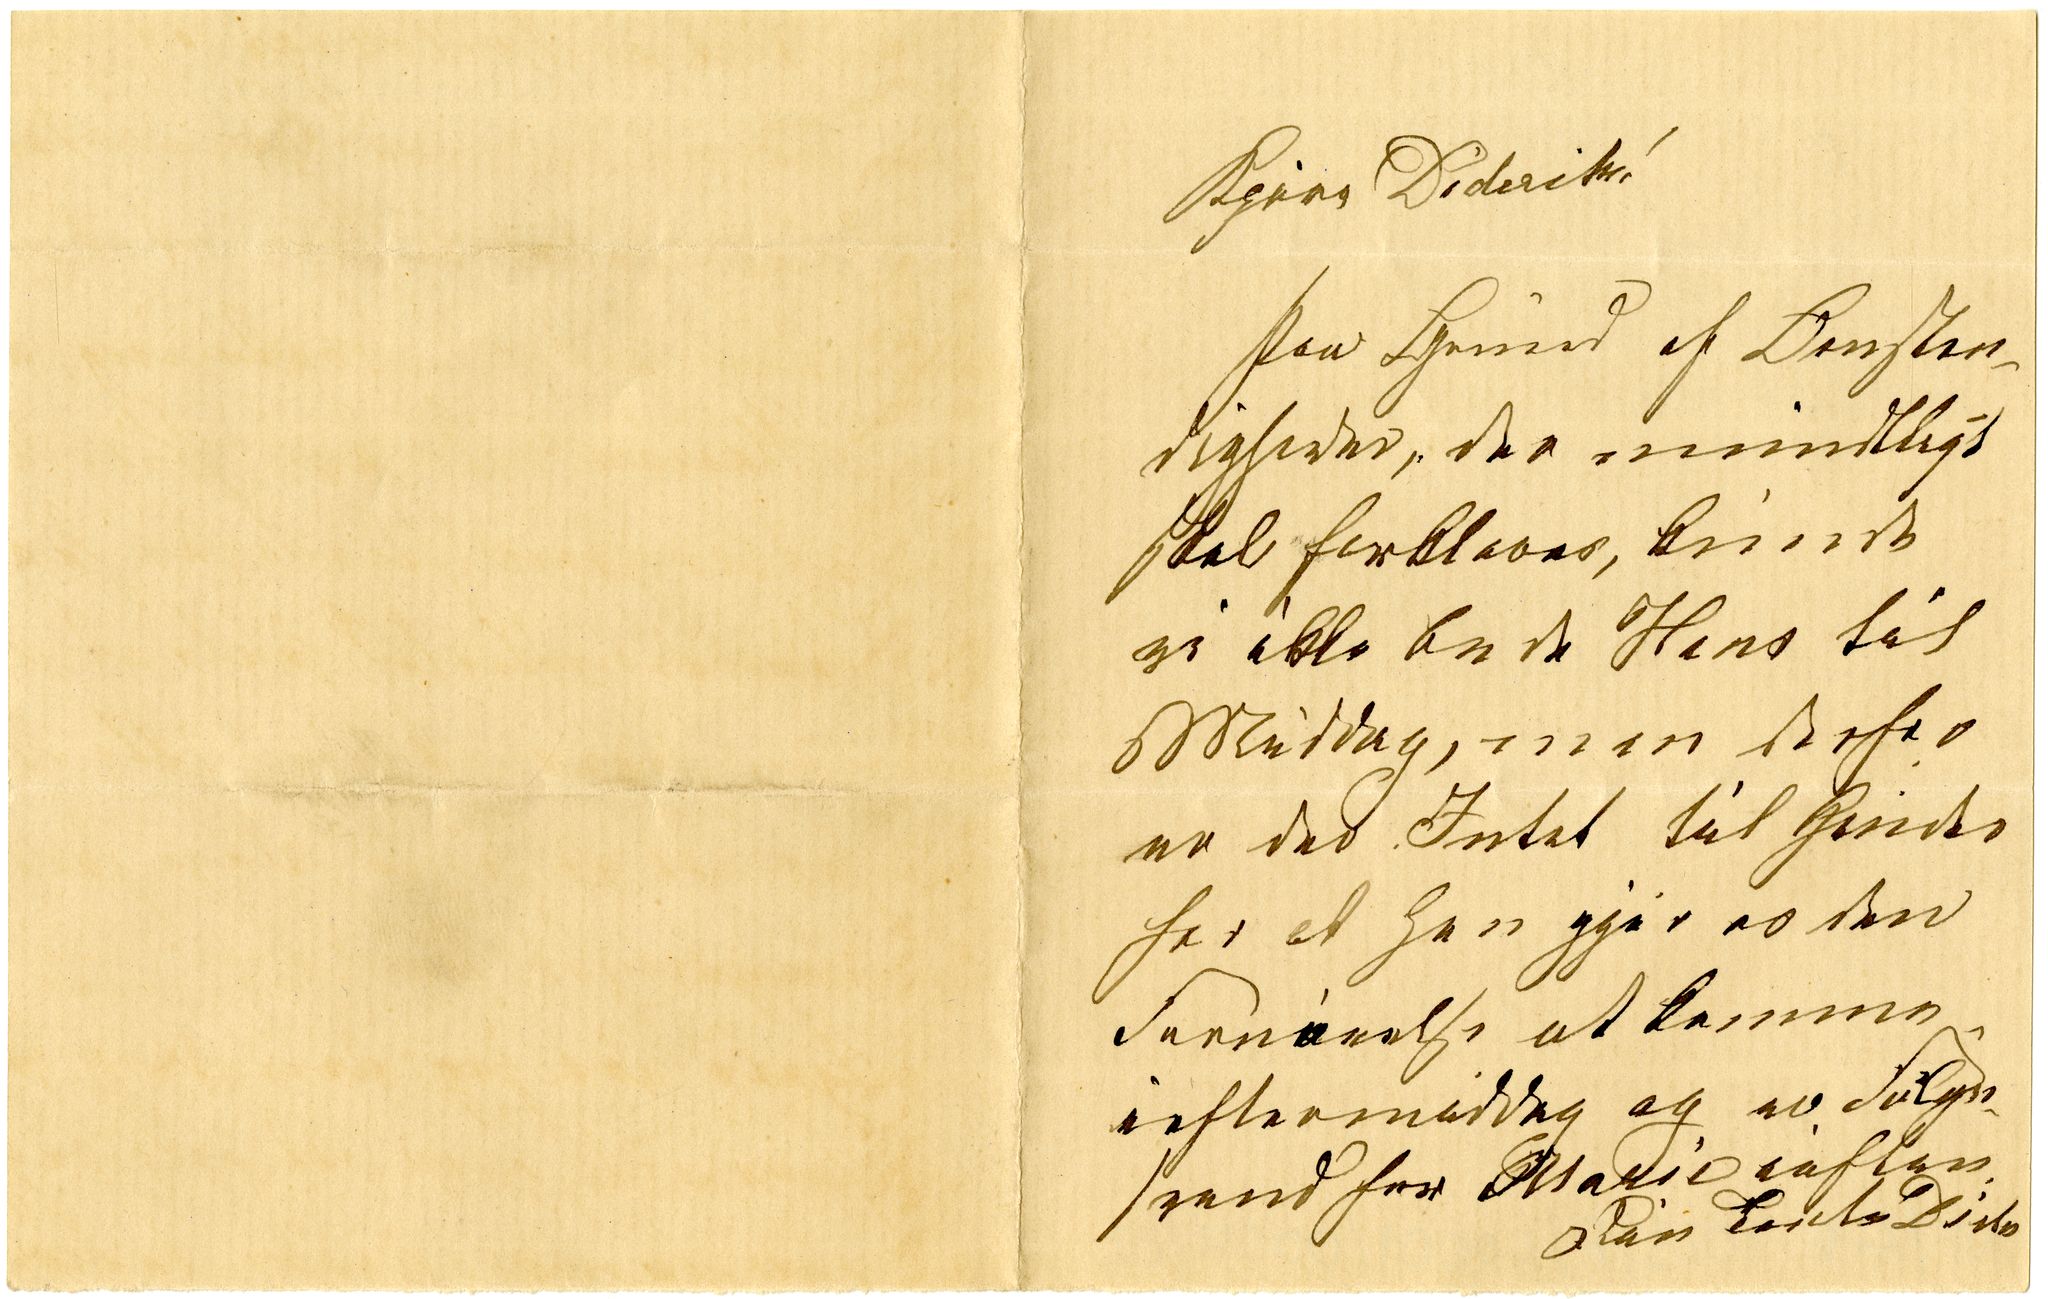 Kjære Diderikke!
Paa Grund af Omsten-
digheder, der mundtligt
skal forklares, kunde
vi ikke byde Hans til
Middag, men derfor
er der Intet til Hinder
for at han gjør os den
Fornøielse at komme
ieftermiddag og er Følge-
svend for Marie iaften.
Din Tante Dida